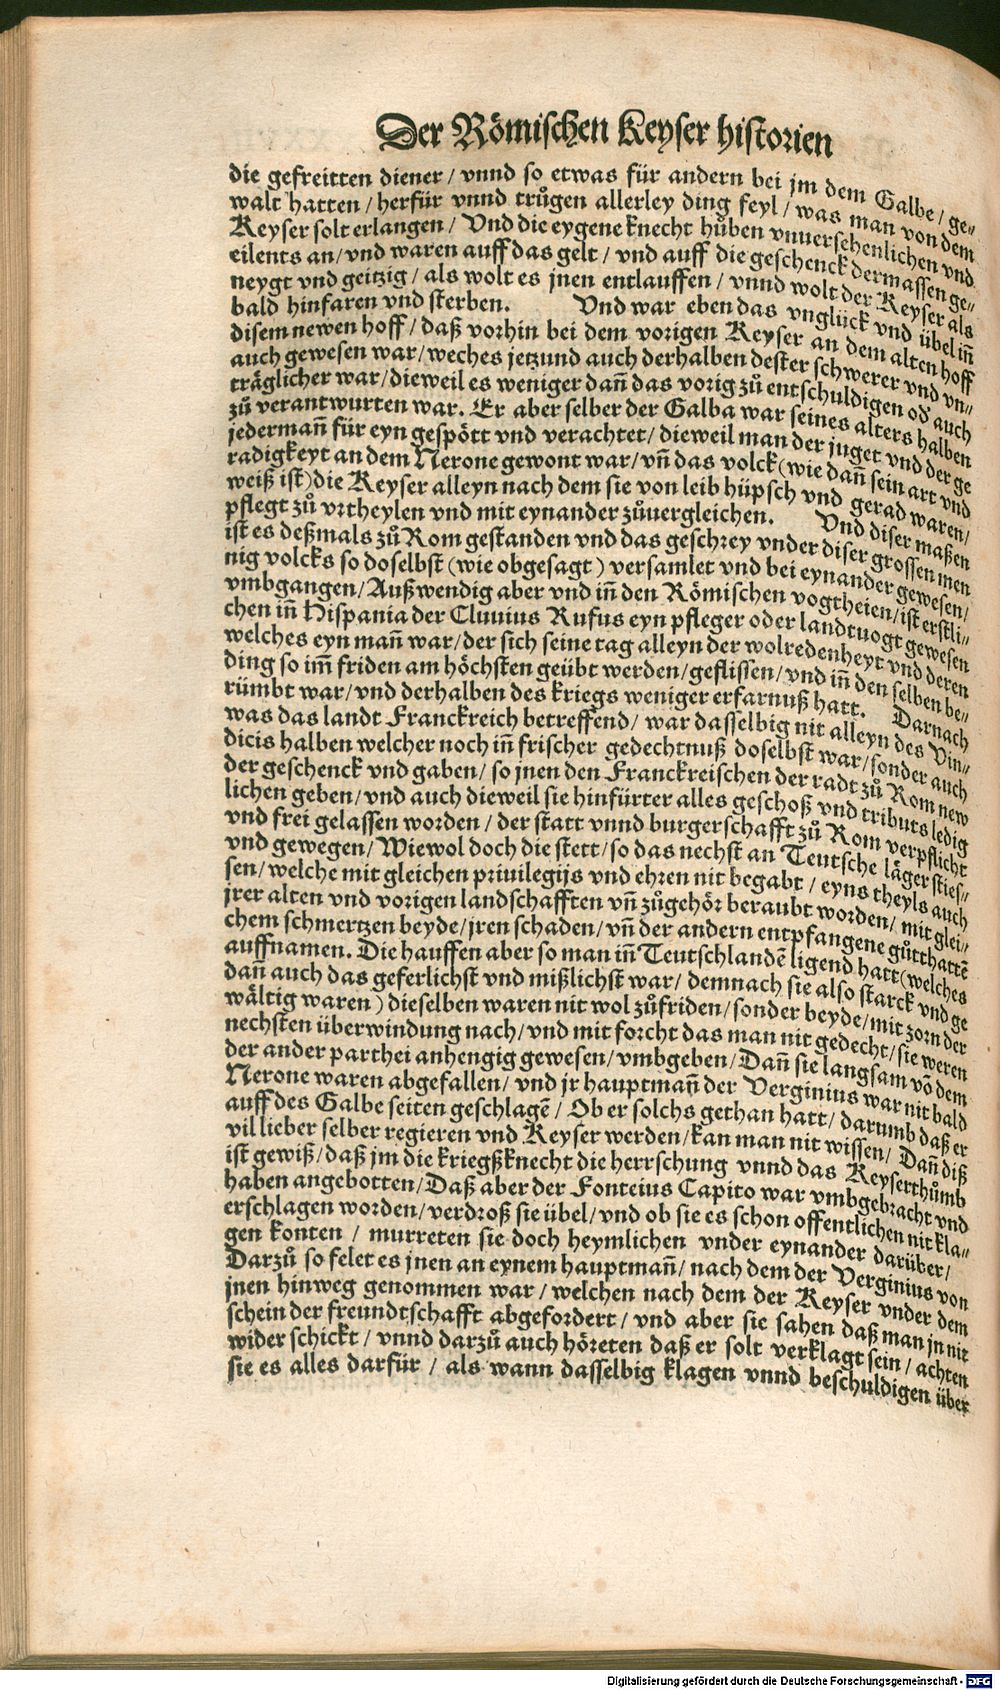 Der Römischen Keyser historien
die gefreitten diener / vnnd so etwas für andern bei jm dem Galbe / ge⸗
walt hatten / herfür vnnd trůgen allerley ding feyl / was man von dem
Keyser solt erlangen / Vnd die eygene knecht hůben vnuersehenlichen vnd
eilents an / vnd waren auff das gelt / vnd auff die geschenck dermassen ge⸗
neygt vnd geitzig / als wolt es jnen entlauffen / vnnd wolt der Keyser als
bald hinfaren vnd sterben. Vnd war eben das vnglück vnd übel iñ
disem newen hoff / daß vorhin bei dem vorigen Keyser an dem alten hoff
auch gewesen war / weches jetzund auch derhalben dester schwerer vnd vn⸗
träglicher war / dieweil es weniger dañ das vorig zů entschuldigen od̕ auch
zů verantwurten war. Er aber selber der Galba war seines alters halben
jedermañ für eyn gespött vnd verachtet / dieweil man der juget vnd der ge
radigkeyt an dem Nerone gewont war / vñ das volck (wie dañ sein art vnd
weiß ist) die Keyser alleyn nach dem sie von leib hüpsch vnd gerad waren /
pflegt zů vrtheylen vnd mit eynander zůuergleichen. Vnd diser maßen
ist es deßmals zů Rom gestanden vnd das geschrey vnder diser grossen men
nig volcks so doselbst (wie obgesagt) versamlet vnd bei eynander gewesen /
vmbgangen / Außwendig aber vnd iñ den Römischen vogtheien / ist erstli⸗
chen iñ Hispania der Cluuius Rufus eyn pfleger oder landtuogt gewesen
welches eyn mañ war / der sich seine tag alleyn der wolredenheyt vnd deren
ding so im̃ friden am höchsten geübt werden / geflissen / vnd iñ den selben be⸗
rümbt war / vnd derhalben des kriegs weniger erfarnuß hatt. Darnach
was das landt Franckreich betreffend / war dasselbig nit alleyn des Vin⸗
dicis halben welcher noch iñ frischer gedechtnuß doselbst war / sonder auch
der geschenck vnd gaben / so jnen den Franckreischen der radt zů Rom new
lichen geben / vnd auch dieweil sie hinfürter alles geschoß vnd tributs ledig
vnd frei gelassen worden / der statt vnnd burgerschafft zů Rom verpflicht
vnd gewegen / Wiewol doch die stett / so das nechst an Teutsche läger sties⸗
sen / welche mit gleichen priuilegijs vnd ehren nit begabt / eyns theyls auch
jrer alten vnd vorigen landschafften vñ zůgehör beraubt worden / mit glei⸗
chem schmertzen beyde / jren schaden / vñ der andern entpfangene gůtthattẽ
auffnamen. Die hauffen aber so man iñ Teutschlandẽ ligend hatt (welches
dañ auch das geferlichst vnd mißlichst war / demnach sie also starck vnd ge
wältig waren) dieselben waren nit wol zůfriden / sonder beyde / mit zorn der
nechsten überwindung nach / vnd mit forcht das man nit gedecht / sie weren
der ander parthei anhengig gewesen / vmbgeben / Dañ sie langsam võ dem
Nerone waren abgefallen / vnd jr hauptmañ der Verginius war nit bald
auff des Galbe seiten geschlagẽ / Ob er solchs gethan hatt / darumb daß er
vil lieber selber regieren vnd Keyser werden / kan man nit wissen / Dañ diß
ist gewiß / daß jm die kriegßknecht die herrschung vnnd das Keyserthůmb
haben angebotten / Daß aber der Fonteius Capito war vmbgebracht vnd
erschlagen worden / verdroß sie übel / vnd ob sie es schon offentlichen nit kla⸗
gen konten / murreten sie doch heymlichen vnder eynander darüber /
Darzů so felet es jnen an eynem hauptmañ / nach dem der Verginius von
jnen hinweg genommen war / welchen nach dem der Keyser vnder dem
schein der freundtschafft abgefordert / vnd aber sie sahen daß man jn nit
wider schickt / vnnd darzů auch höreten daß er solt verklagt sein / achten
sie es alles darfür / als wann dasselbig klagen vnnd beschuldigen über
Digitalisierung gefördert durch die Deutsche Forschungsgemeinschaft - DFG